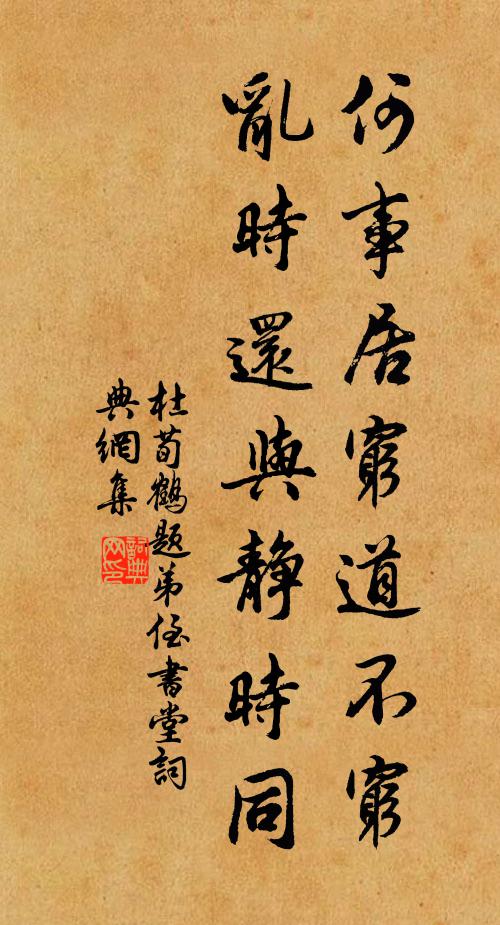 何事居窮道不窮
亂時還與靜時同
杜荀鶴題弟侄書堂詞
典網集
詞典
网印